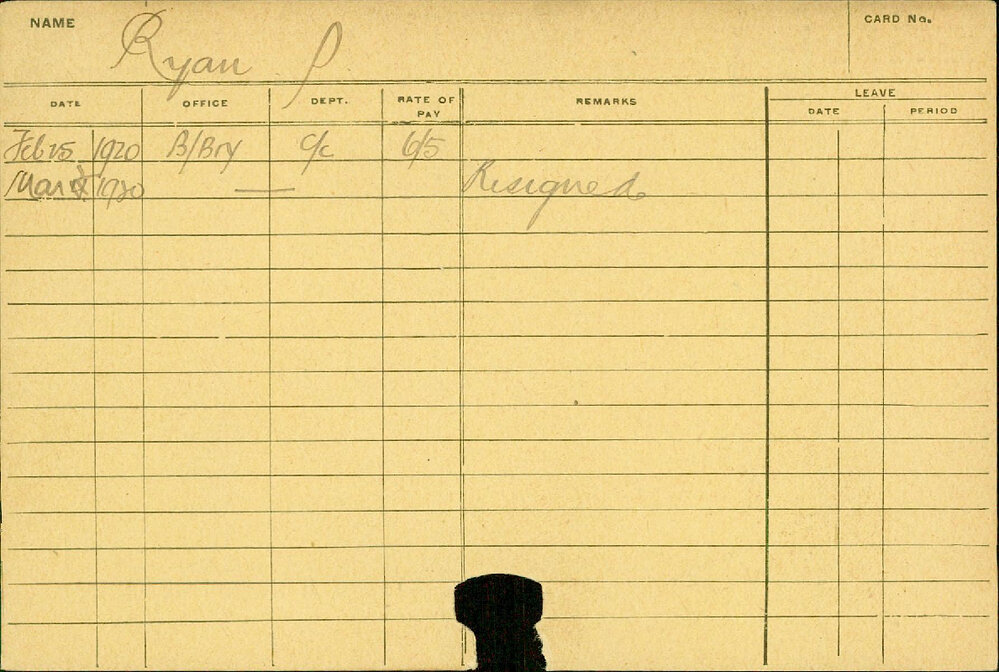 NAME Ryan P CARD No.
DATE OFFICE DEPT. RATE OF PAY REMARKS LEAVE
DATE PERIOD
Feb 25 1920 B/Bry C/c 6/5
Mar 1920 — Resigned